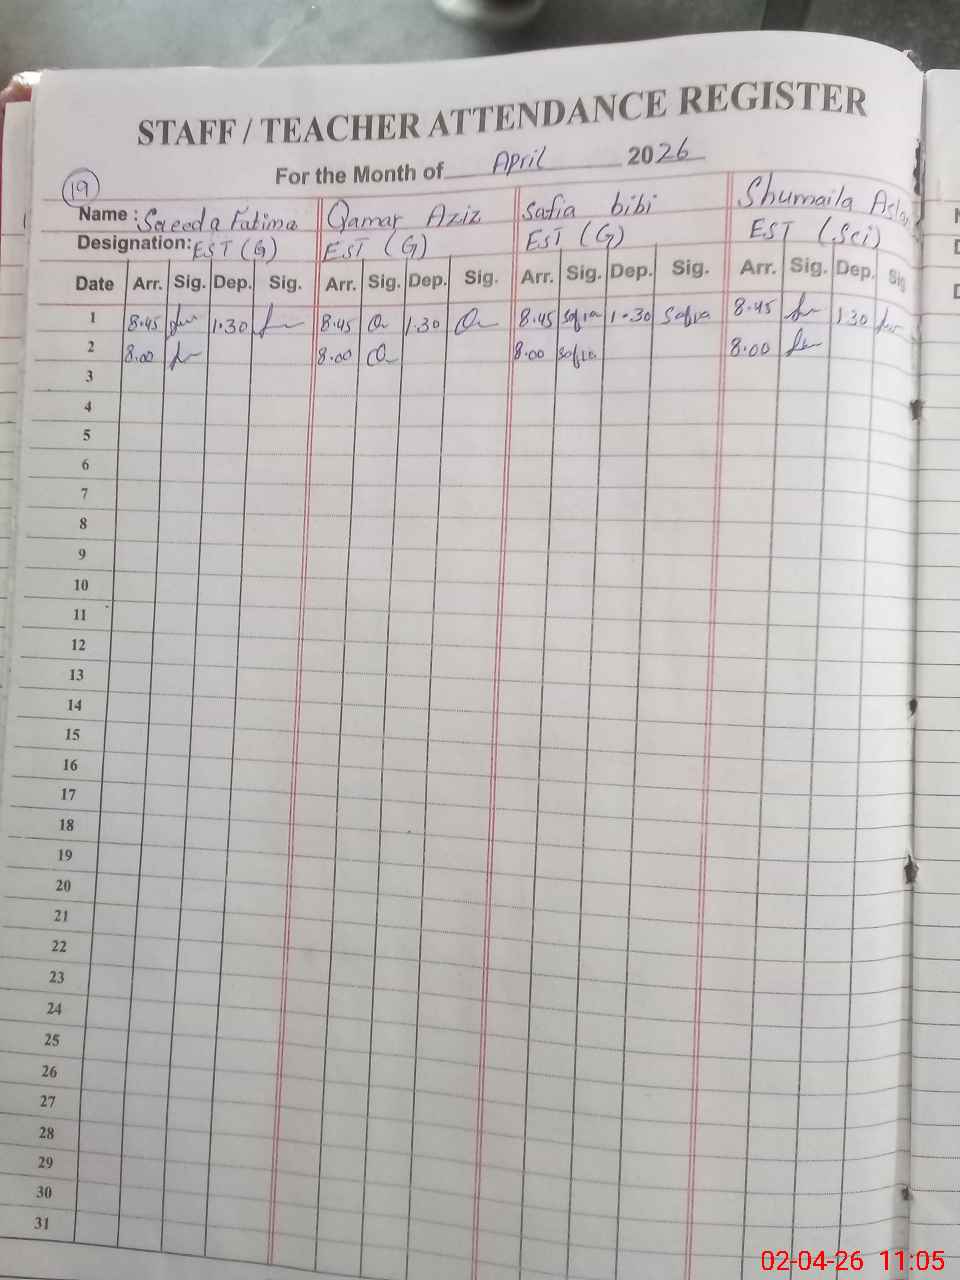 STAFF / TEACHER ATTENDANCE REGISTER
For the Month of April 2026
19
Name : Saeeda Fatima Qamar Aziz Safia bibi Shumaila Aslam
Designation: EST (G) EST (G) EST (G) EST (Sci)
Date Arr. Sig. Dep. Sig. Arr. Sig. Dep. Sig. Arr. Sig. Dep. Sig. Arr. Sig. Dep. Sig
1 8.45 1.30 8.45 1.30 8.45 Safia 1.30 Safia 8.45 1.30
2 8.00 8.00 8.00 Safia 8.00
3
4
5
6
7
8
9
10
11
12
13
14
15
16
17
18
19
20
21
22
23
24
25
26
27
28
29
30
31
02-04-26 11:05